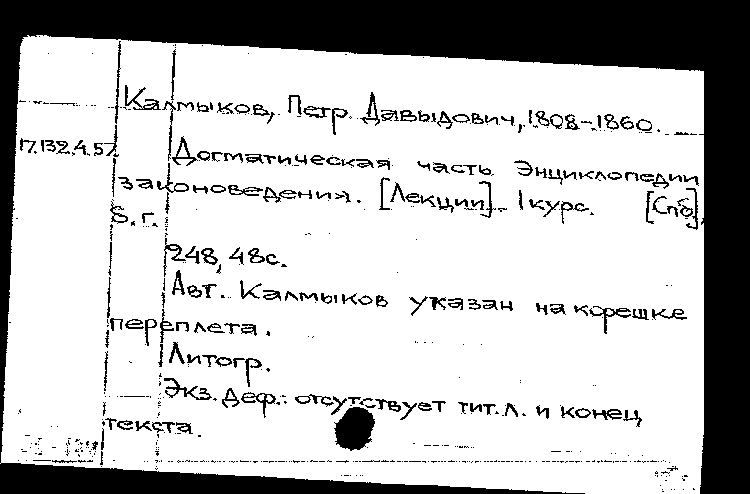 Калмыков, Петр Давыдович, 1808-1860.
17.132.4.57. Догматическая часть Энциклопедии
законоведения. [Лекции]. I курс. [Спб],
б.г.
248, 48с.
Авт. Калмыков указан на корешке
переплета.
Литогр.
Экз. деф.: отсутствует тит.л. и конец
текста.